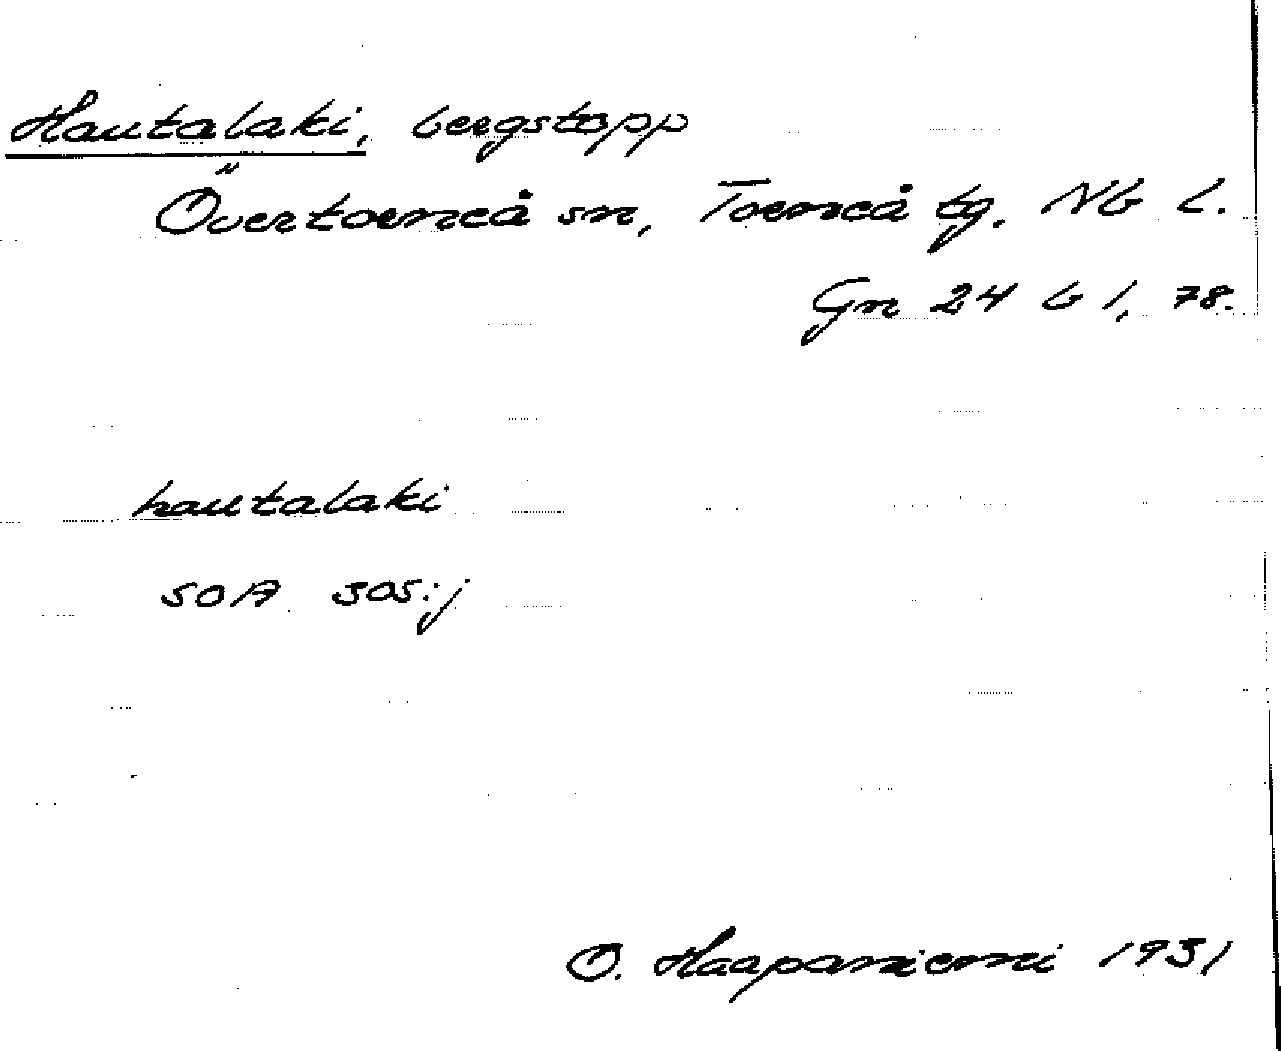 Hautalaki, bergstopp
Övertorneå sn, Torneå tg. Nb l.
Gn 24 b 1, 78.
hautalaki
SOA 305:j
O. Haapaniemi 1931